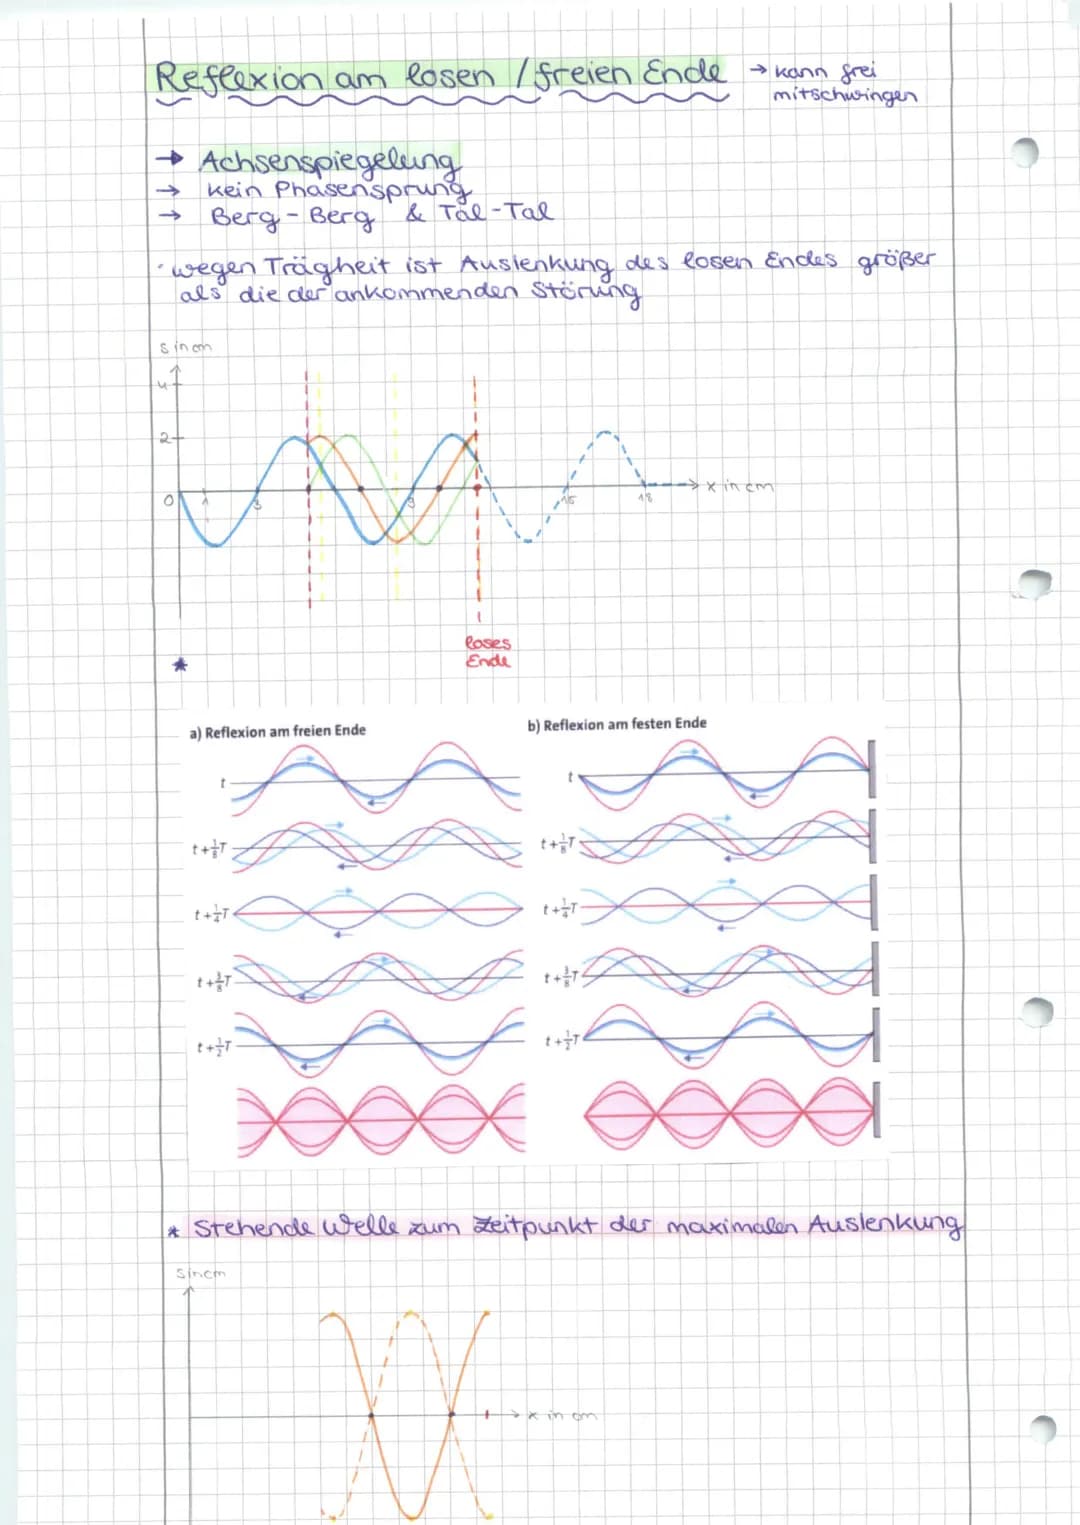 Reflexion am losen / freien Ende → kann frei
mitschwingen
→ Achsenspiegelung
→ kein Phasensprung
→ Berg - Berg & Tal - Tal
· wegen Trägheit ist Auslenkung des losen Endes größer
als die der ankommenden Störung
s in cm
4
2
0 1 3 9 15 18 → x in cm
loses
Ende
*
a) Reflexion am freien Ende
b) Reflexion am festen Ende
t
t
t + 1/8 T
t + 1/8 T
t + 1/4 T
t + 1/4 T
t + 3/8 T
t + 3/8 T
t + 1/2 T
t + 1/2 T
* Stehende Welle zum Zeitpunkt der maximalen Auslenkung
s in cm
→ x in cm